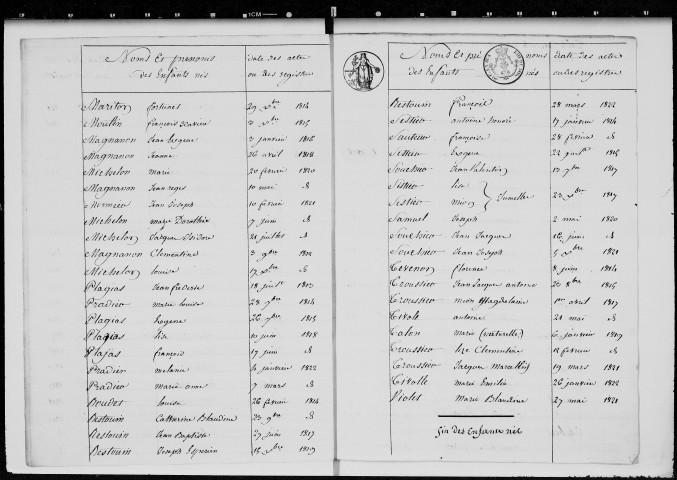 1CM
Noms et prenoms
des Enfants nés
date des actes
ou des registres
Mariton fortuné 29 xbre 1814
Moulin françois Xavier 3 xbre 1815
Magnanon Jean Eugene 3 janvier 1816
Magnanon Jeanne 26 avril 1818
Michelon marie 20 fevrier 1820
Magnanon Jean regis 10 mai d
Jean Joseph 10 fevrier 1821
Michelon marie Dorothée 7 juin d
Michelon Jacques Isidore 21 juillet d
Magnanon Clementine 3 9bre 1812
Michelon louise 17 xbre d
Plagias Jean frederic 18 juillet 1813
Pradier marie louise 28 7bre 1814
Plagias Eugene 26 7bre 1815
Plagias lise 10 juin 1818
Plajas françois 17 juin d
Pradier melanie 4 janvier 1822
Pradier marie anne 7 mars d
louise 26 fevrier 1814
Restouin Catherine Blandine 23 9bre d
Restouin Jean Baptiste 27 juin 1817
Restouin Joseph 15 xbre 1819
Noms et pré noms
des Enfants nés
date des actes
ou des registres
Restouin françois 28 mars 1822
antoine honoré 17 janvier 1814
françoise 28 fevrier d
Eugene 22 juillet 1815
Jean Valentin 13 7bre 1817
lise
Jumelles 23 xbre 1817
Samuel Joseph 2 mai 1820
Jean Jacques 16 juin d
Jean Joseph 5 xbre 1821
florence 8 juin 1814
Troussier Jean Jacques antoine 20 8bre 1815
Troussier Magdelaine 1er avril 1817
antoine 21 mai d
Talon marie (naturelle) 6 janvier 1819
Troussier lise Clementine 12 fevrier d
Troussier Jacques Marcellin 19 mars 1821
marie Emilie 26 janvier 1822
Violet Marie Blandine 27 mai 1821
fin des Enfants nés